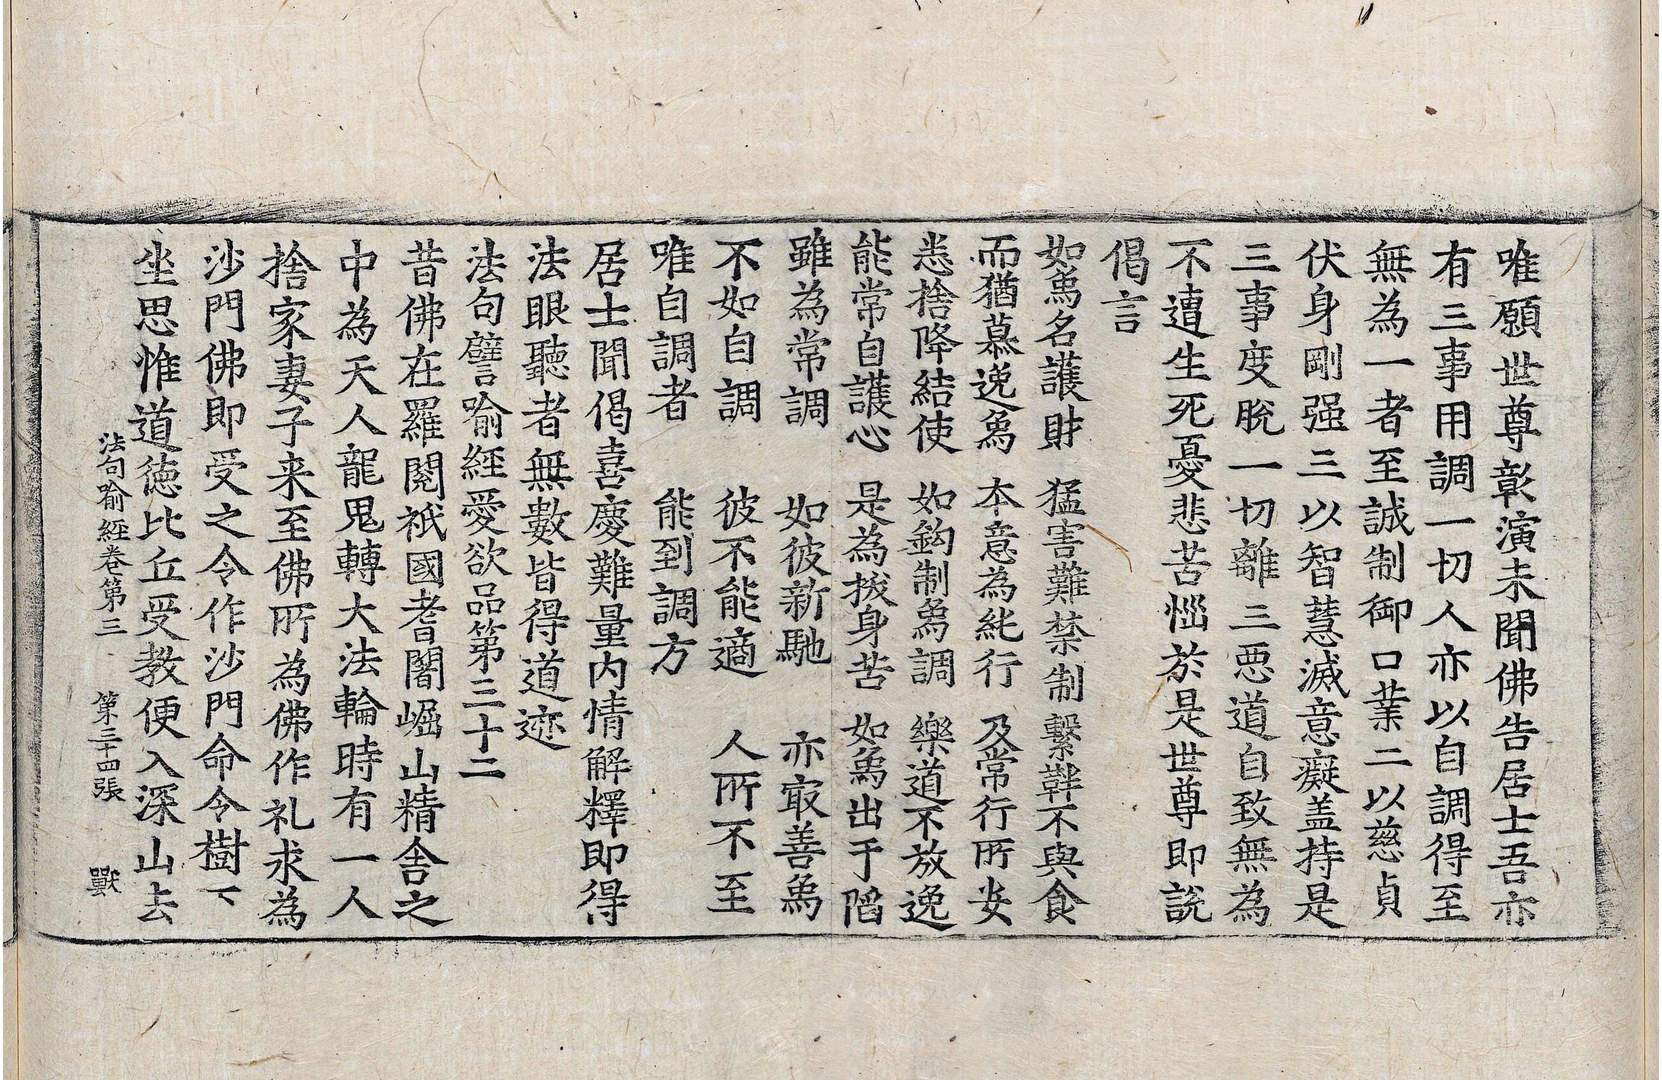 唯願世尊彰演未聞佛告居士吾亦
有三事用調一切人亦以自調得至
無為一者至誠制御口業二以慈貞
伏身剛强三以智慧滅意癡盖持是
三事度脫一切離三惡道自致無為
不遭生死憂悲苦惱於是世尊即說
偈言
如鳥名護財 猛害難禁制 繫靽不與食
而猶慕逸鳥 本意為純行 及常行所安
悉捨降結使 如鈎制鳥調 樂道不放逸
能常自護心 是為拔身苦 如鳥出于陷
雖為常調 如彼新馳 亦㝡善鳥
不如自調 彼不能適 人所不至
唯自調者 能到調方
居士聞偈喜慶難量內情解釋即得
法眼聽者無數皆得道迹
法句譬喻經愛欲品第三十二
昔佛在羅閱祇國耆闍崛山精舍之
中為天人龍鬼轉大法輪時有一人
捨家妻子来至佛所為佛作礼求為
沙門佛即受之令作沙門命令樹下
坐思惟道德比丘受教便入深山去
法句喻經卷第三 第三十四張 獸